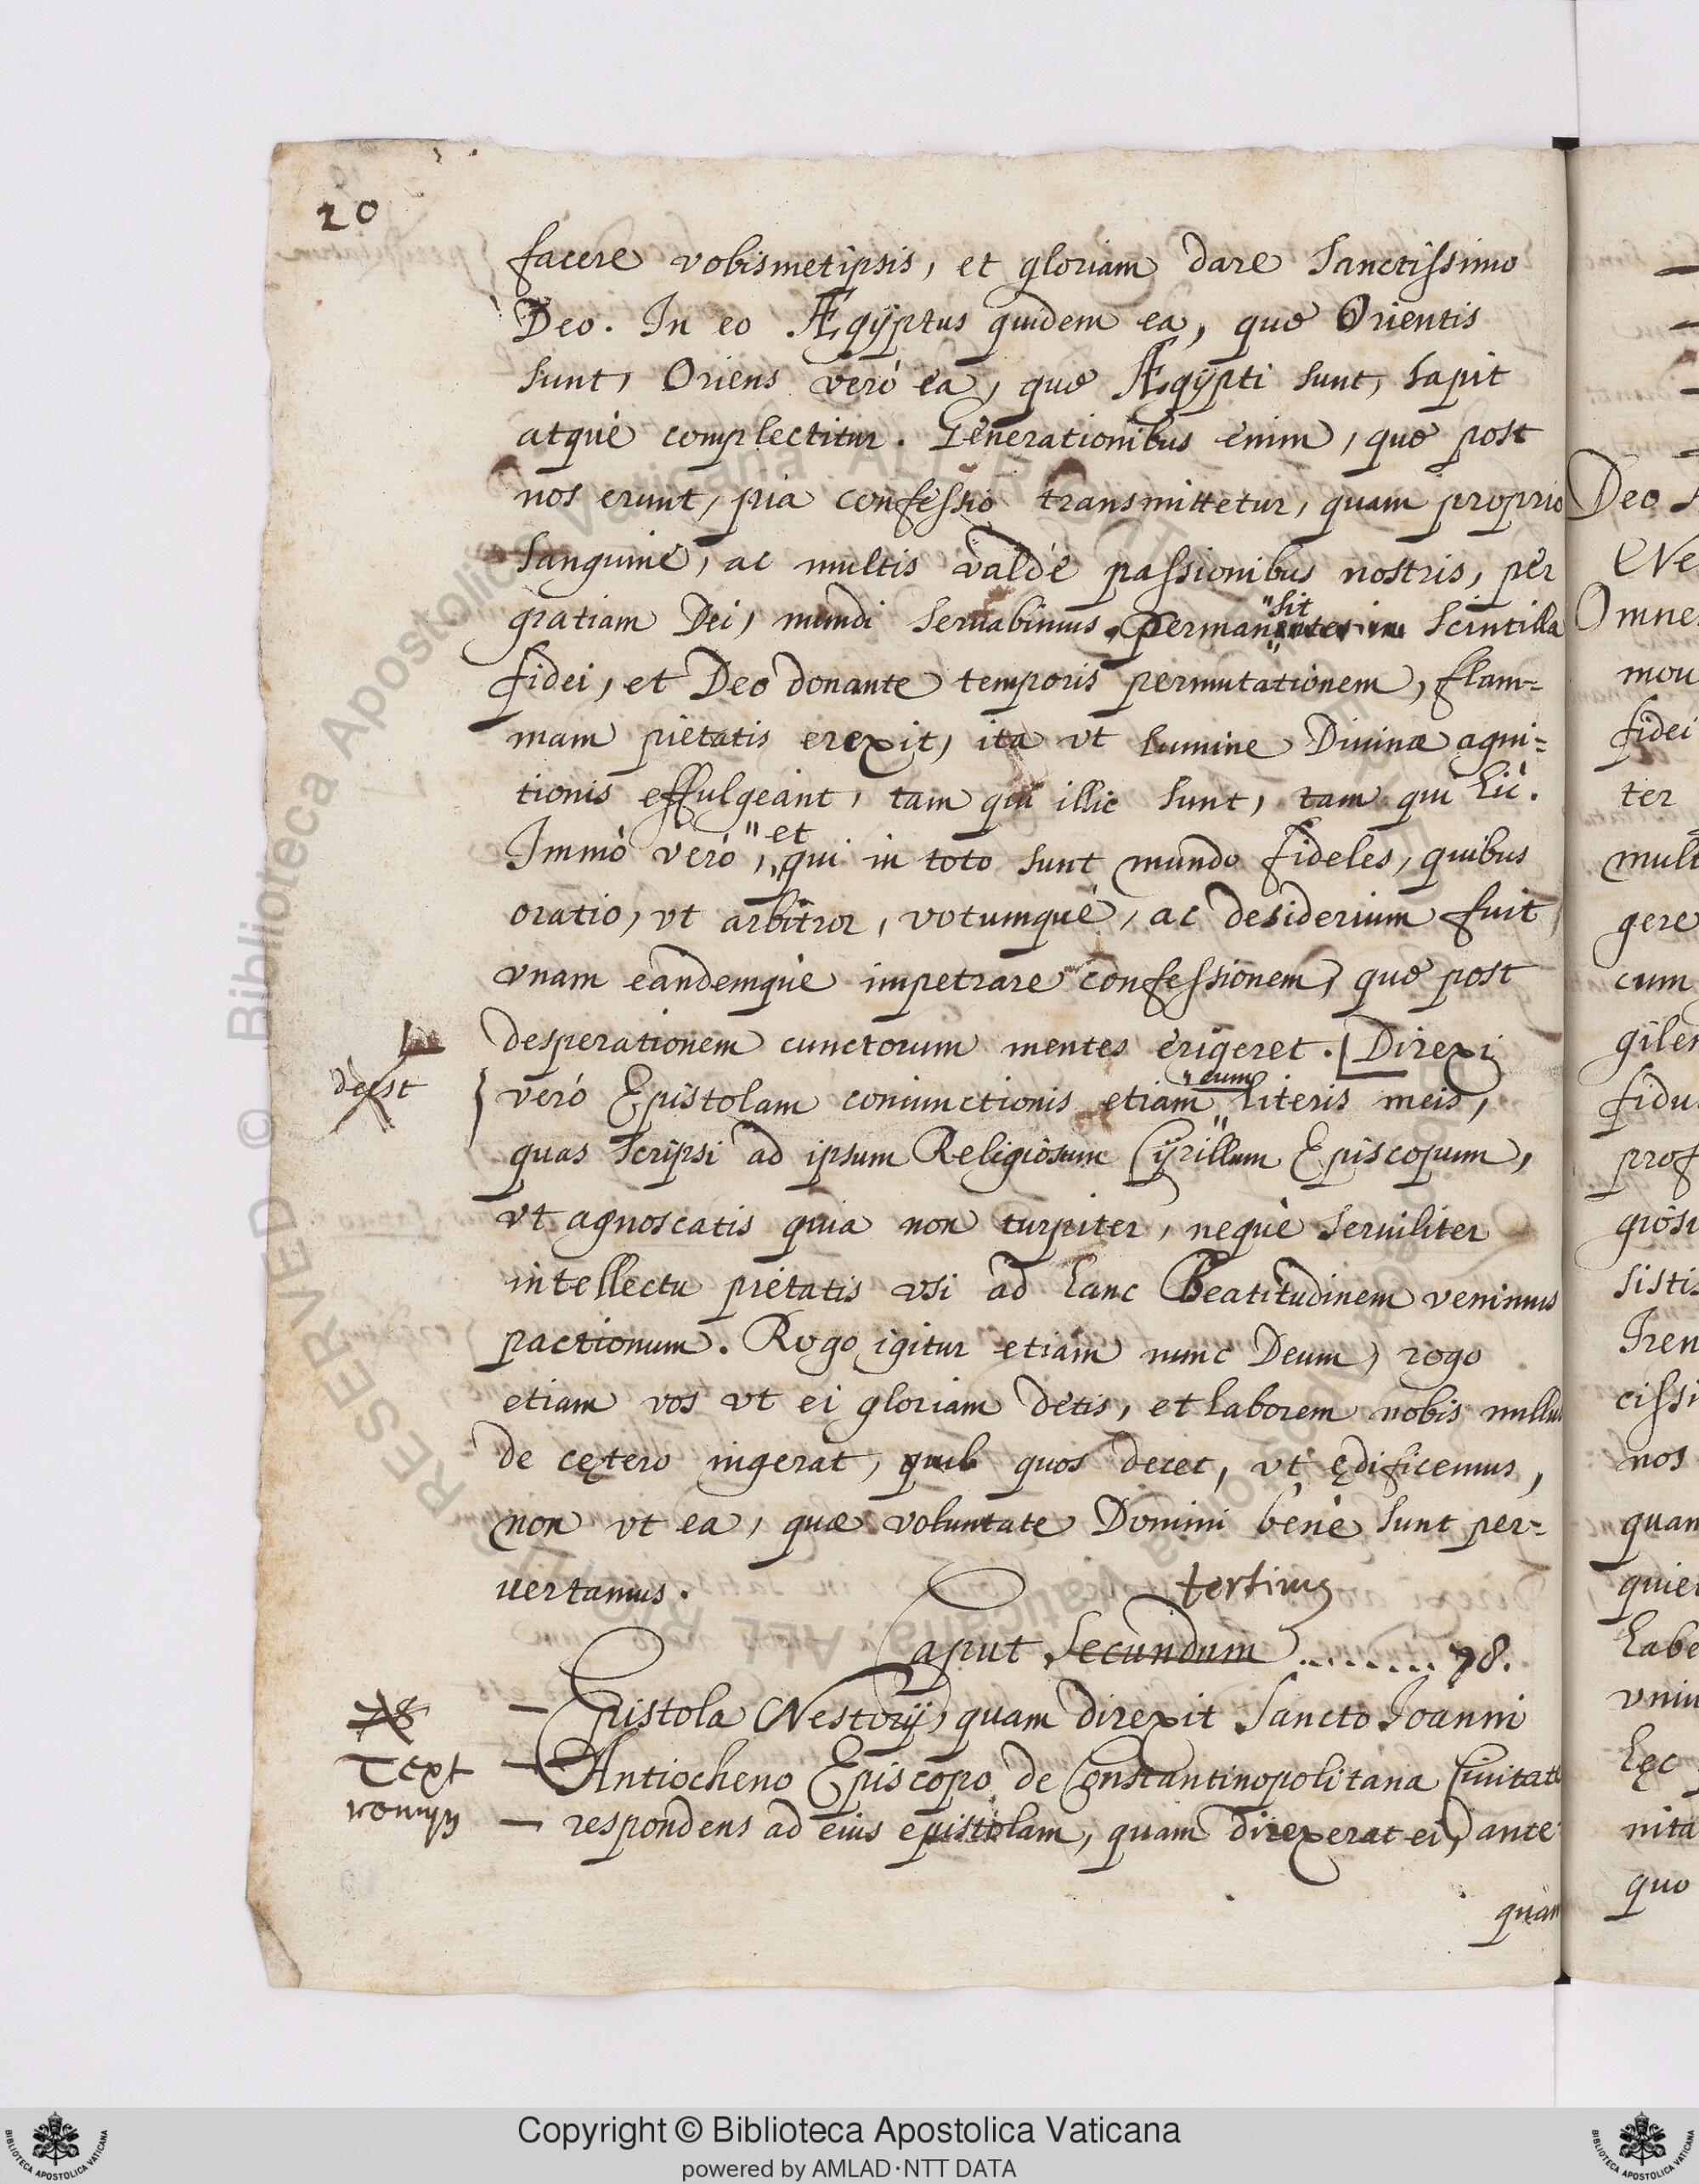 20
facere vobismetipsis, et gloriam dare Sanctissimo
Deo. In eo Ægÿptus quidem ea, quę Orientis
sunt, Oriens verò ea, quę Ægÿpti sunt, sapit
atquè complectitur. Generationibus enim, quę post
nos erunt, pia confessio transmittetur, quam proprio
sanguine, ac multis valdè passionibus nostris, per
gratiam Dei, mundi seruabimus. Permansit scintilla
fidei, et Deo donante temporis permutationem, flam=
mam pietatis erexit, ita vt lumine Diuinæ agni=
tionis effulgeant, tam qui illic sunt, tam qui hic.
Immò verò, et qui in toto sunt mundo fideles, quibus
oratio, vt arbitror, votumquè, ac desiderium fuit
vnam eandemquè impetrare confessionem, quę post
desperationem cunctorum mentes erigeret. [Direxi
deest
verò Epistolam coniunctionis etiam cum literis meis,
quas scripsi ad ipsum Religiosum Cÿrillum Episcopum,
vt agnoscatis quia non turpiter, nequè seruiliter
intellectu pietatis vsi ad hanc Beatitudinem venimus
pactionum. Rogo igitur etiam nunc Deum, rogo
etiam vos vt ei gloriam detis, et laborem nobis nullu
de cętero ingerat, quos decet, vt ędificemus,
non vt ea, quæ voluntate Domini benè sunt per=
uertamus.
tertium
Caput Secundum ........ 78.
78
— Epistola Nestorij, quam direxit Sancto Joanni
Text
— Antiocheno Episcopo de Constantinopolitana Ciuitate
— respondens ad eius epistolam, quam direxerat ei, ante
quam
Deo
Ne
Omne
mou
fidei
ter
mult
gere
cum
giler
fidu
prof
giosi
sistis
Iren
cissi
nos
quam
quie
habe
vniu
hęc
nita
quo
© Biblioteca Apostolica Vaticana ALL RIGHTS RESERVED
Copyright © Biblioteca Apostolica Vaticana
powered by AMLAD·NTT DATA
BIBLIOTECA APOSTOLICA VATICANA
BIBLIOTECA APOSTOLICA VATICANA